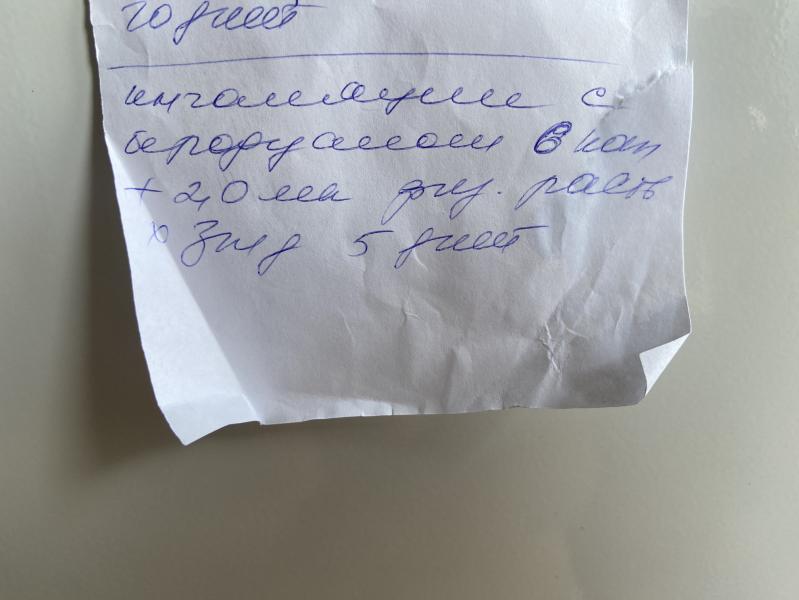 10 дней
ингаляции с
беродуалом 6 кап
+ 2,0 мл физ. раств
х 3 р д 5 дней